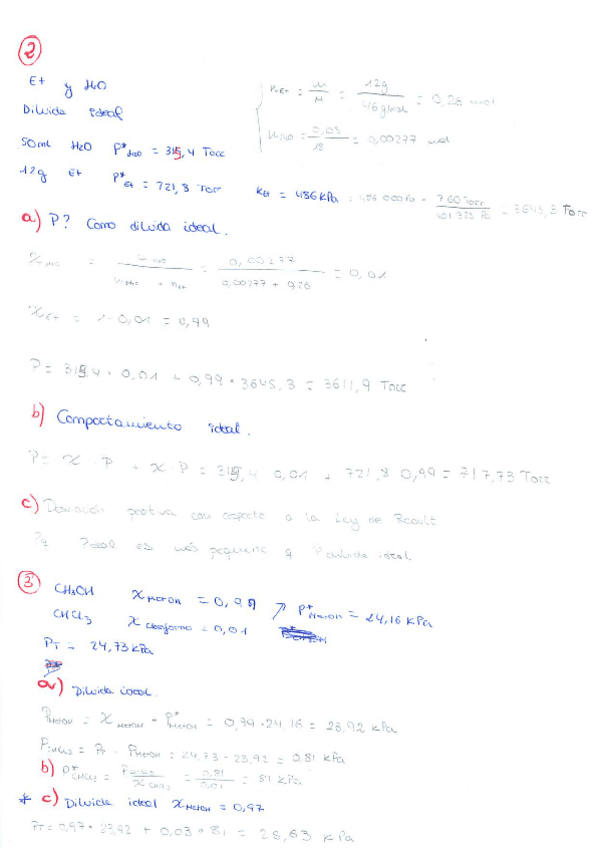 2
Et y H2O
Diluida ideal
nEt = m/M = 12g / 46g/mol = 0,26 mol
nH2O = 0,05 / 18 = 0,00277 mol
50ml H2O P*H2O = 315,4 Torr
12g Et P*Et = 721,8 Torr KEt = 486 kPa = 486 000 Pa · 760 Torr / 101 325 Pa = 3645,3 Torr
a) P? Como diluida ideal.
XH2O = nH2O / nH2O + nEt = 0,00277 / 0,00277 + 0,26 = 0,01
XEt = 1-0,01 = 0,99
P = 315,4 · 0,01 + 0,99 · 3645,3 = 3611,9 Torr
b) Comportamiento ideal.
P = X · P + X · P = 315,4 0,01 + 721,8 0,99 = 717,73 Torr
c) Desviación positiva con respecto a la Ley de Raoult
Pq Pideal es más pequeña q Pdiluida ideal
3
CH3OH XMetOH = 0,99 P*MetOH = 24,16 kPa
CHCl3 Xcloroformo = 0,01
PT = 24,73 kPa
a) Diluida ideal.
PMetOH = XMetOH · P*MetOH = 0,99 · 24,16 = 23,92 kPa
PCHCl3 = PT - PMetOH = 24,73 - 23,92 = 0,81 kPa
b) P*CHCl3 = PCHCl3 / XCHCl3 = 0,81 / 0,01 = 81 kPa
* c) Diluida ideal XMetOH = 0,97
PT = 0,97 · 23,92 + 0,03 · 81 = 25,63 kPa